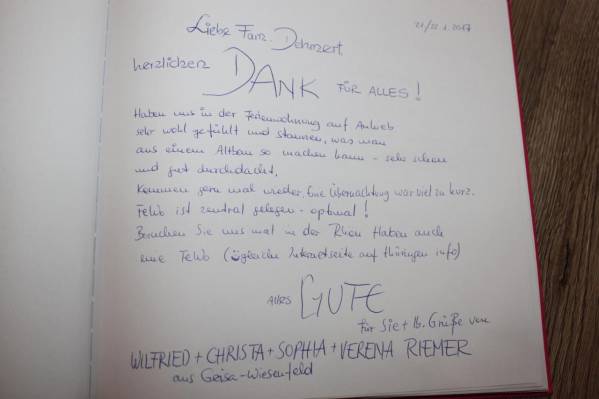 Liebe Fam. Dehmert. 21/22.1.2017
herzlichen DANK FÜR ALLES!
Haben uns in der Ferienwohnung auf Anhieb
sehr wohl gefühlt und staunen, was man
aus einem Altbau so machen kann - sehr schön
und gut durchdacht.
Kommen gern mal wieder. Eine Übernachtung war viel zu kurz.
FeWo ist zentral gelegen - optimal!
Besuchen Sie uns mal in der Rhön Haben auch
eine FeWo (gleiche Internetseite auf thüringen info)
ALLES GUTE
für Sie + lb. Grüße von
WILFRIED + CHRISTA + SOPHIA + VERENA RIEMER
aus Geisa-Wiesenfeld